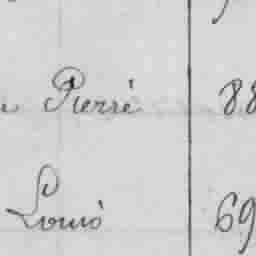 Pierré 88
Louis 69